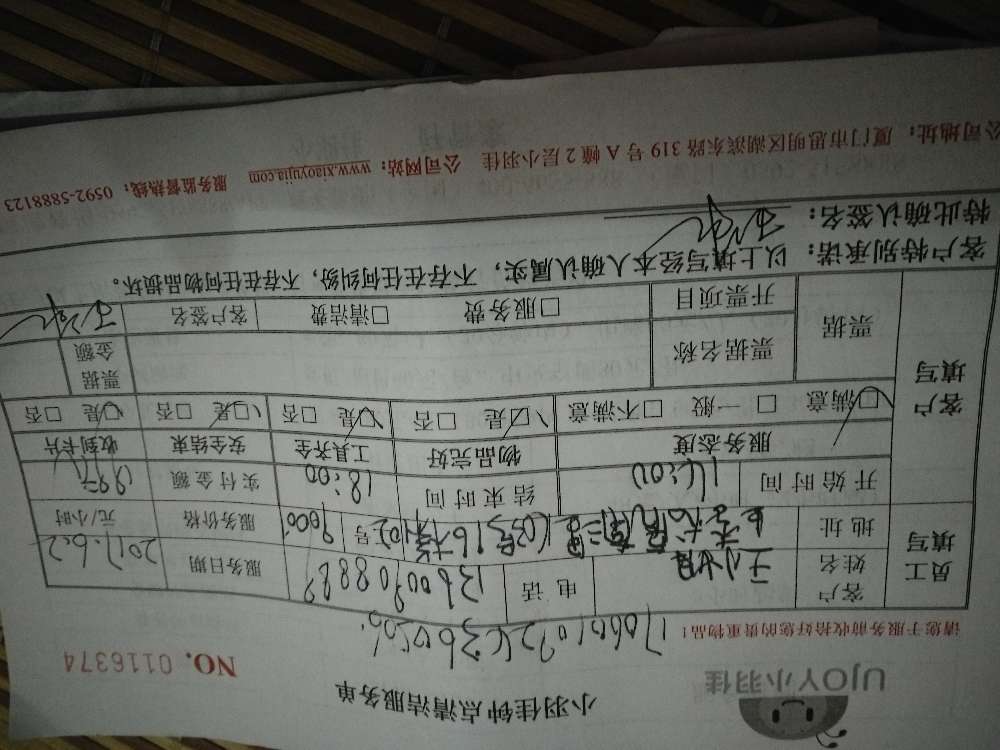 小羽佳钟点清洁服务单
UJOY小羽佳
NO. 0116374
请您于服务前收好拾好您的贵重物品！
员工填写
客户姓名
电话 13600908889
服务日期 2017.6.2
地址
号
服务价格
元/小时
开始时间 14:00
结束时间 18:00
实付金额
客户填写
服务态度 物品完好 工具齐全 安全结束 收到卡片
☑满意 □一般 □不满意 ☑是 □否 ☑是 □否 ☑是 □否 ☑是 □否
票据
票据名称
票据金额
开票项目 □服务费 □清洁费
客户签名
客户特别承诺：以上填写经本人确认属实，不存在任何纠纷，不存在任何物品损坏。
特此确认签名：
公司地址：厦门市思明区湖滨东路319号A幢2层小羽佳 公司网站：www.xiaoyujia.com 服务监督热线：0592-5888123